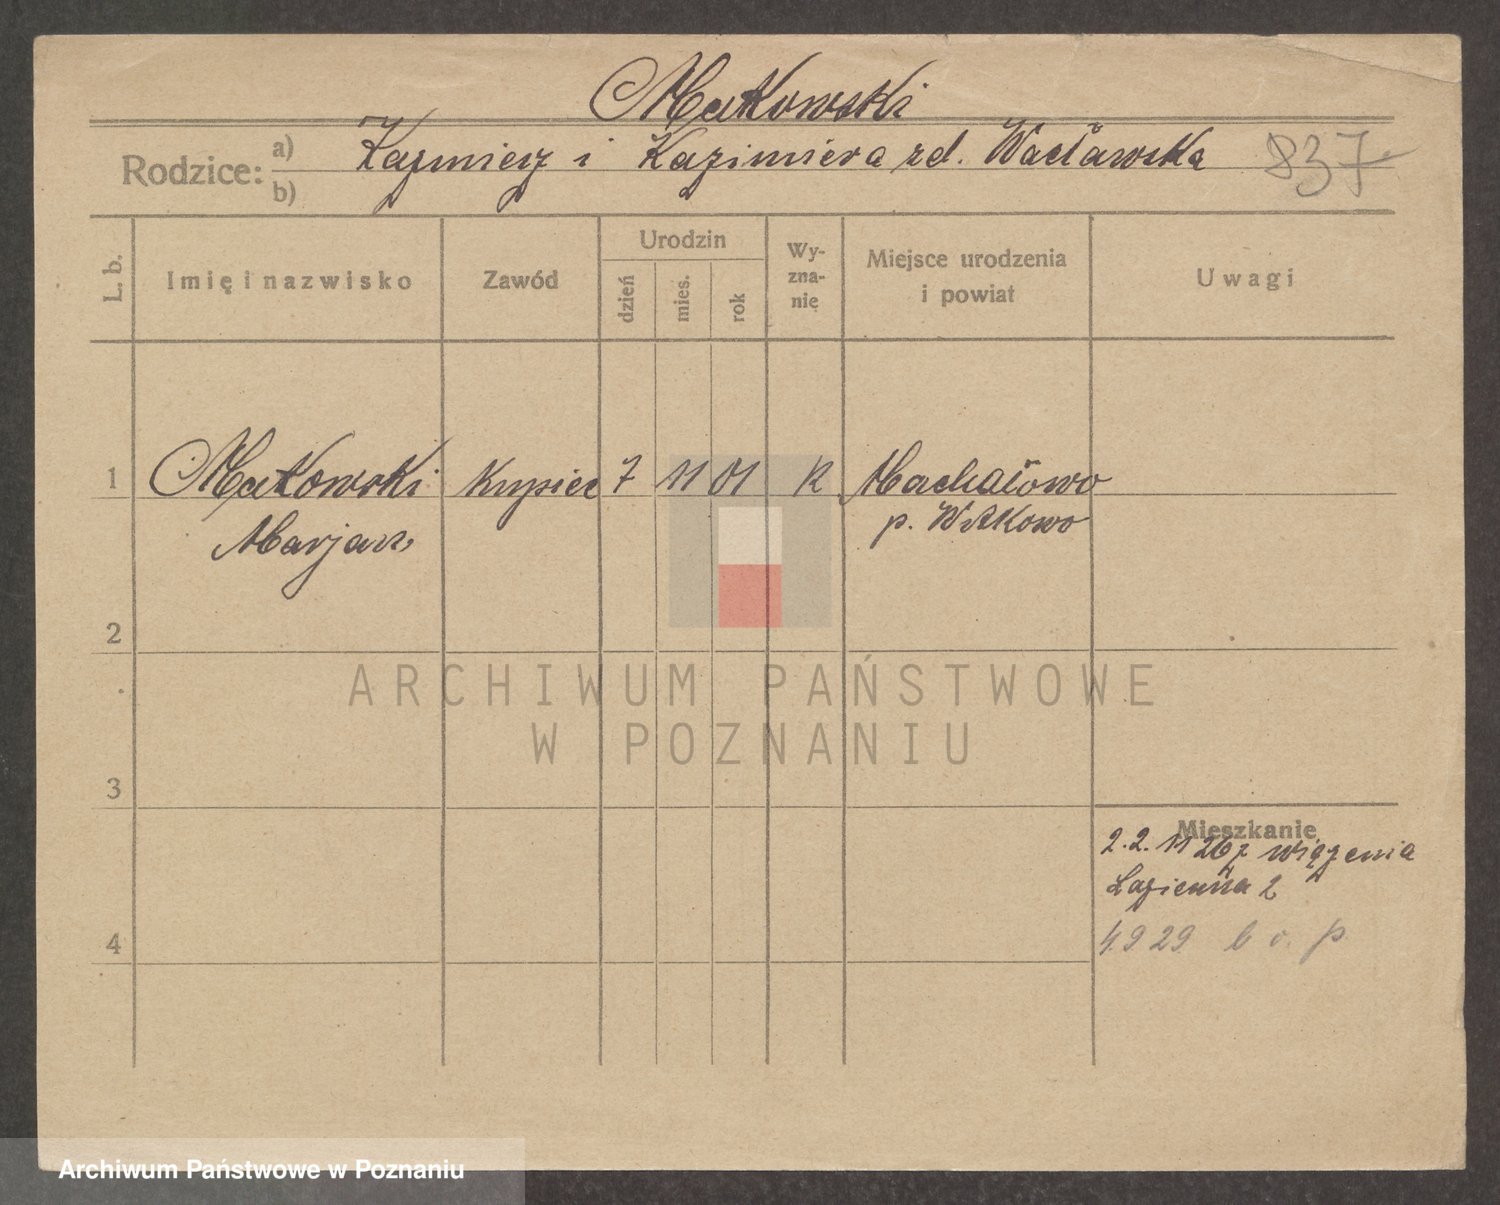 Matkowski
Rodzice: a) Kazmierz i Kazimiera zd. Wacławska 837
b)
L. b. Imię i nazwisko Zawód Urodzin dzień mies. rok Wyznanie Miejsce urodzenia i powiat Uwagi
1 Matkowski Kupiec 7 11 01 R Machałowo
Marjan p. Witkowo
2
ARCHIWUM PAŃSTWOWE
W POZNANIU
3
Mieszkanie
2.2. 26 z więzenia
Łazienna 2
4 4 9 29 b o p
Archiwum Państwowe w Poznaniu